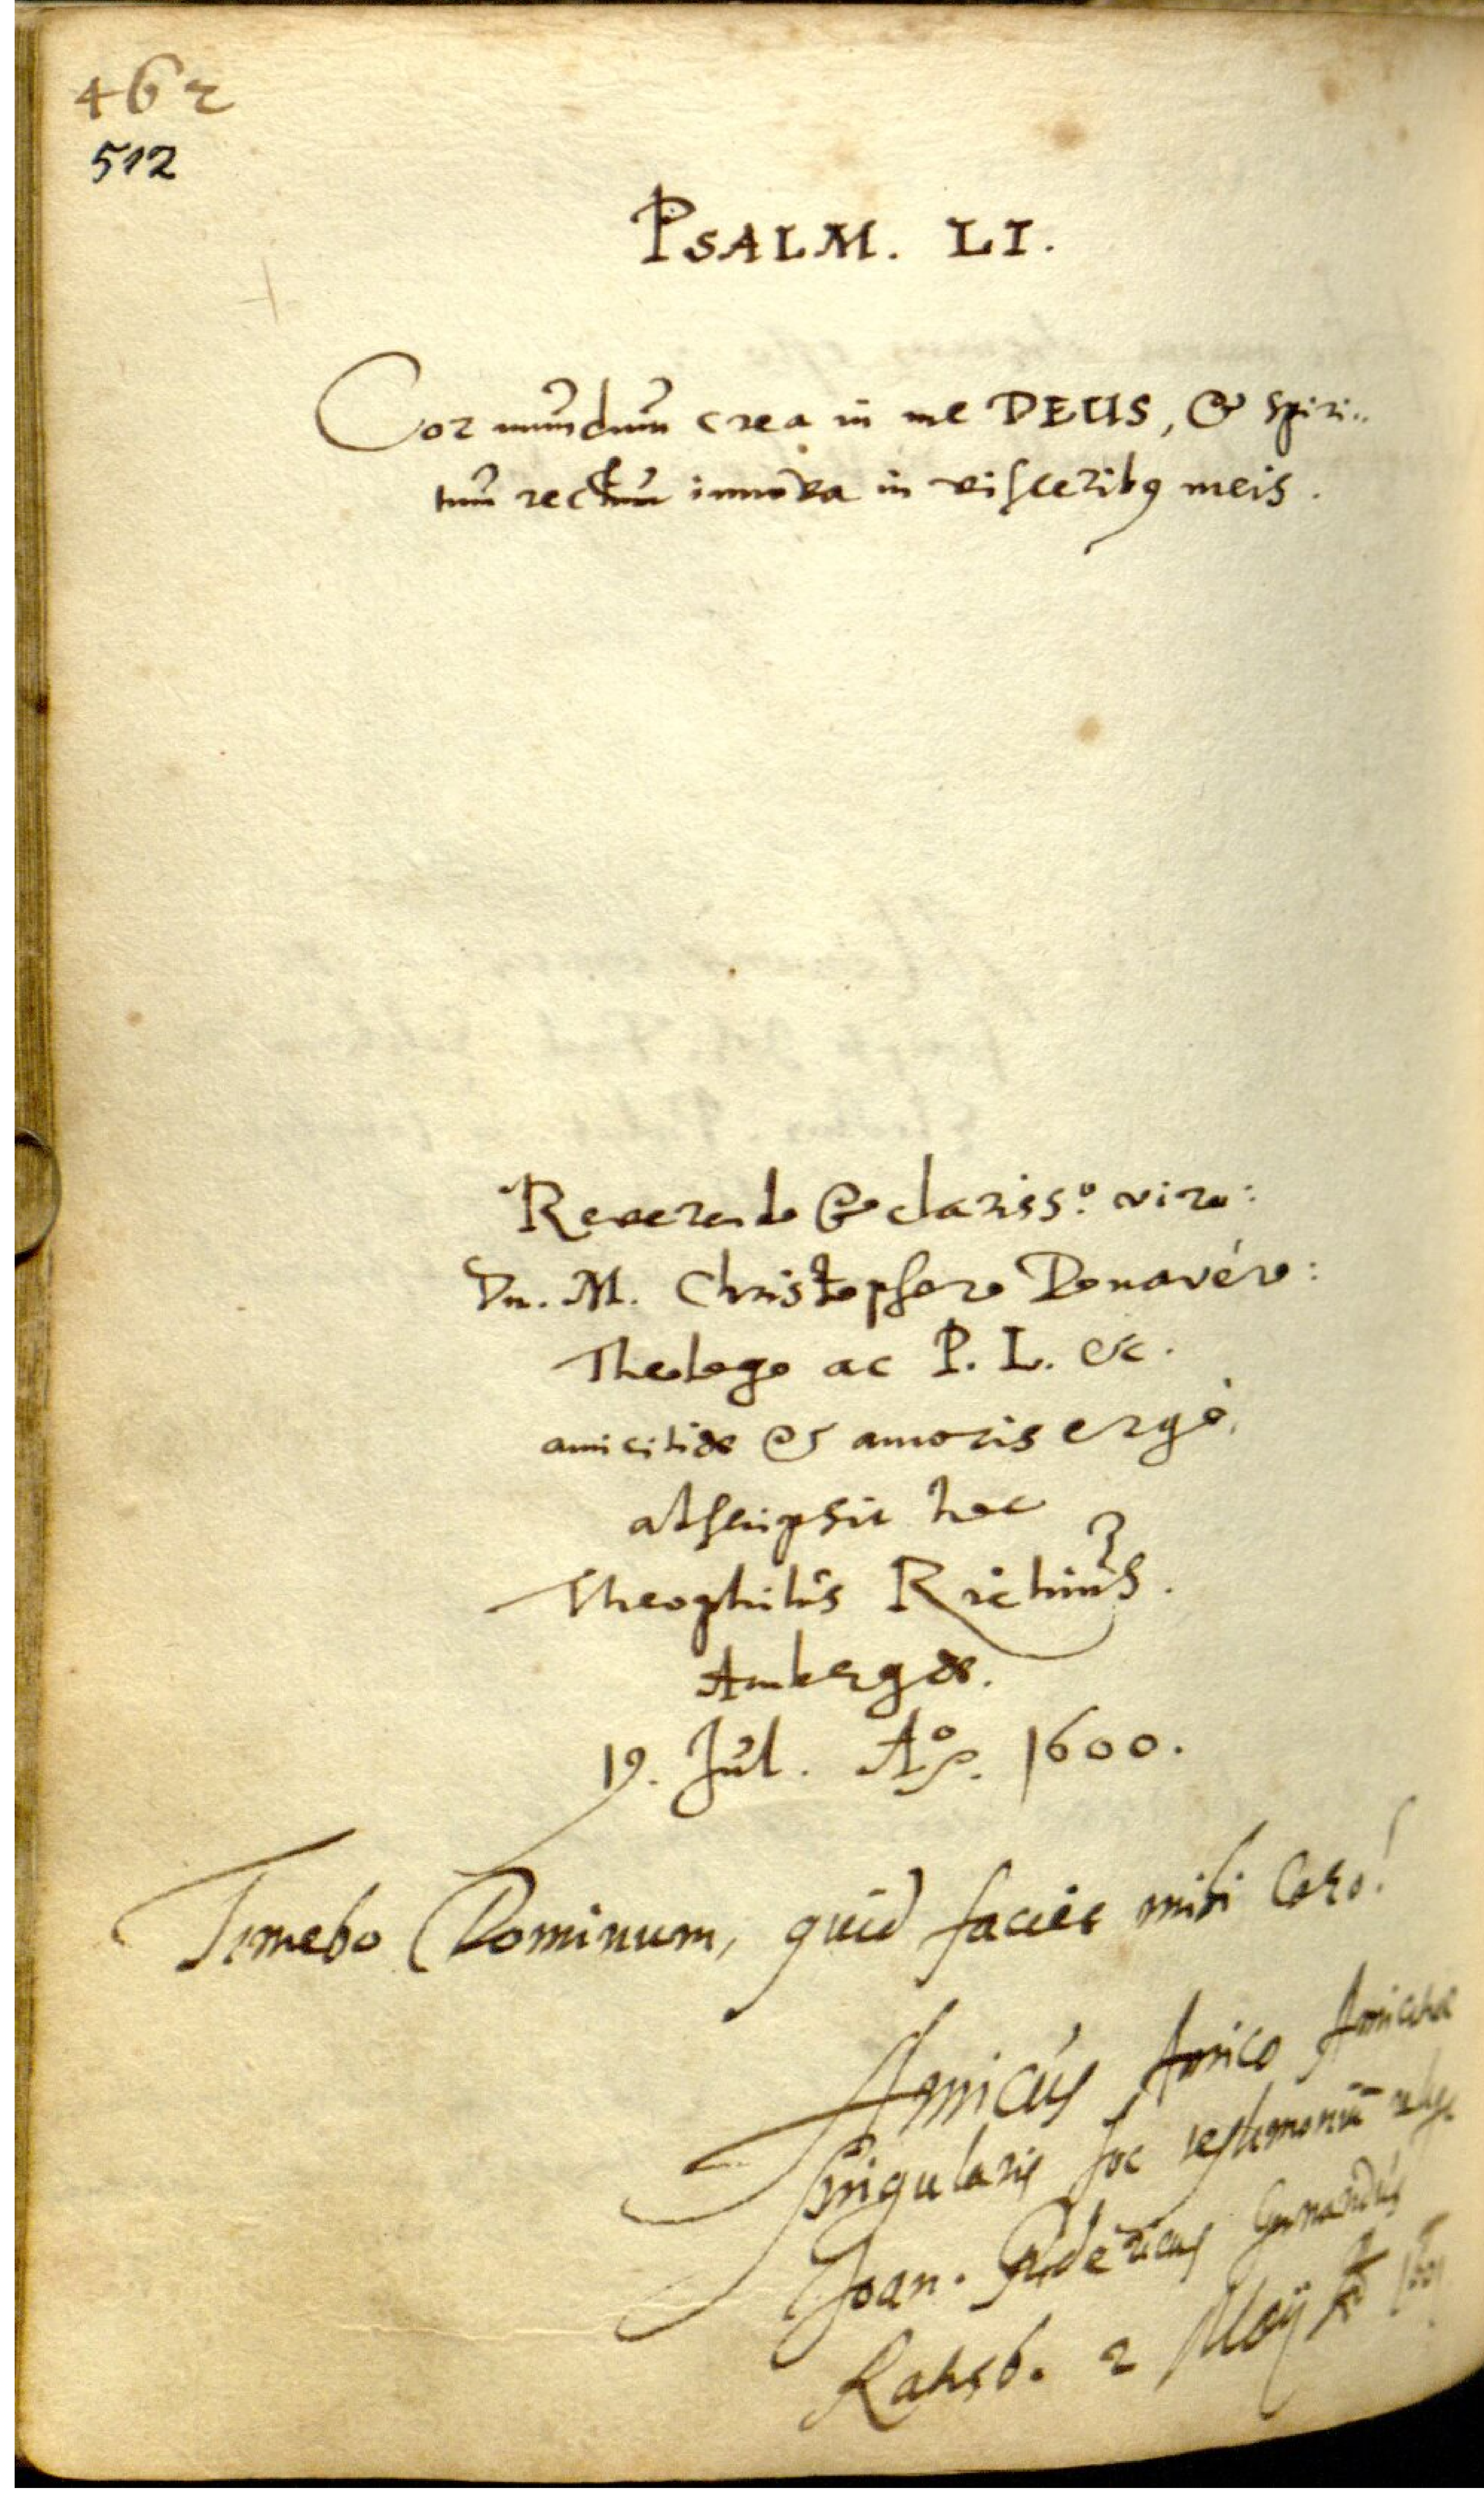 462
512
PSALM. LI.
Cor mundum crea in me DEUS, & spiri-
tum rectum innova in visceribq meis.
Reverendo & clariss.o viro:
Dn. M. Christophoro Donavéro:
Theologo ac P. L. &c.
amicitiæ & amoris ergò,
adscripsit hoc
Theophilus Richius.
Ambergæ.
19. Jul. Ao. 1600.
Timebo Dominum, quid faciet mihi Caro!
Amicus Amico Amicitiæ
singularis hoc testimoniū
Joan. Fridericus
Ratisb. 2 Maij